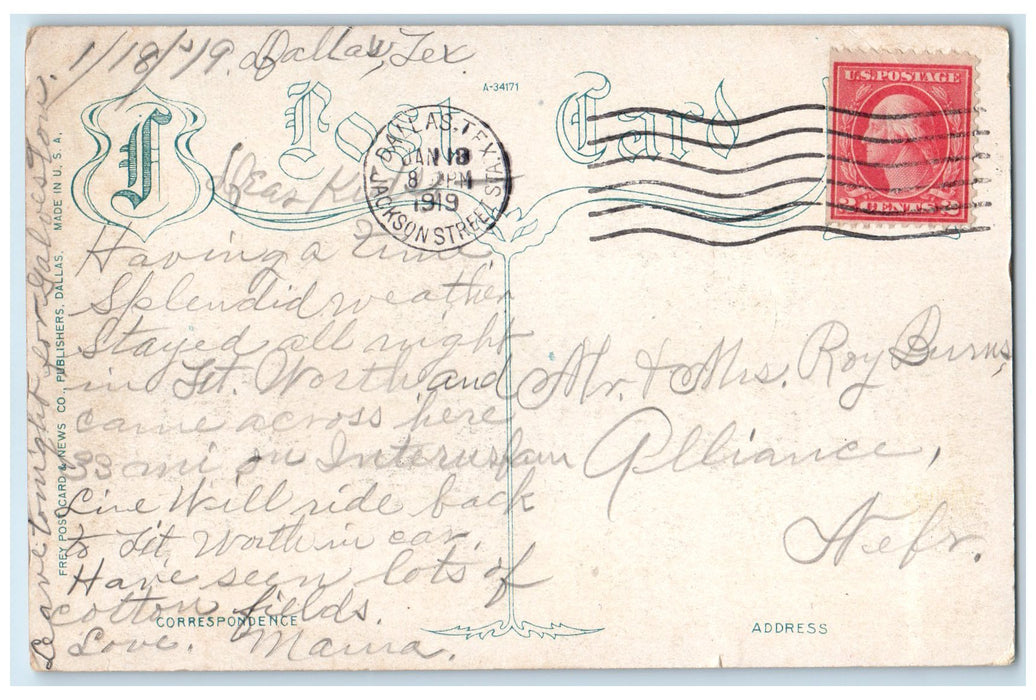 1/18/19. Dallas, Tex
A-34171
Post Card
U.S. POSTAGE
2 CENTS 2
DALLAS, TEX.
JAN 18
8 PM
1919
JACKSON STREET STA.
Dear
Having a time.
Splendid weather
Stayed all night
in Ft. Worth and
came across here
33 mi on Interurban
Line Will ride back
to Ft Worth in car.
Have seen lots of
cotton fields.
Love. Mama.
Leave tonight for Galveston.
FREY POST CARD & NEWS CO., PUBLISHERS, DALLAS. MADE IN U. S. A.
CORRESPONDENCE
Mr. & Mrs. Roy Burns,
Alliance,
Nebr.
ADDRESS